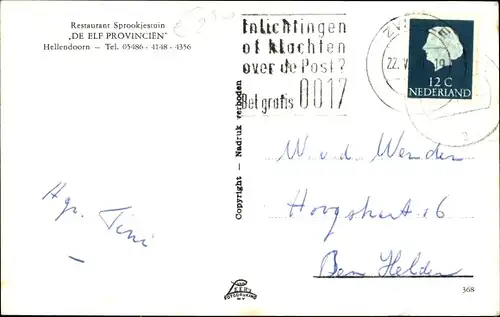 Restaurant Sprookjestuin
„DE ELF PROVINCIËN"
Hellendoorn — Tel. 05486 - 4148 - 4356
Inlichtingen
of klachten
over de Post?
Bel gratis 0017
22.V
12 C
NEDERLAND
Copyright - Nadruk verboden
W. v.d. Werden
Hoogstraat 16
Den Helder
Hgr. Tini
368